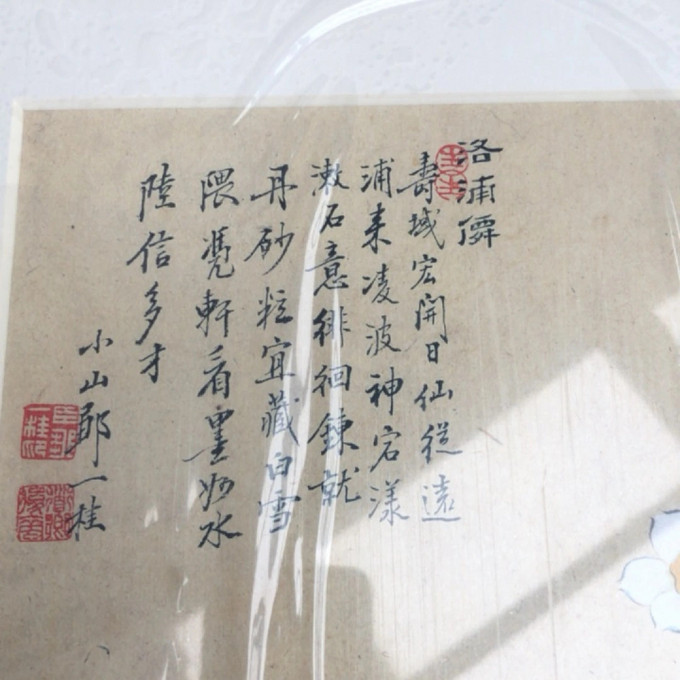 洛浦僊
壽域宏開日仙從遠
浦来凌波神宕漾
漱石意徘徊鍊就
丹砂粒宜藏白雪
隈凴軒看畫妙水
陸信多才
小山鄒一桂